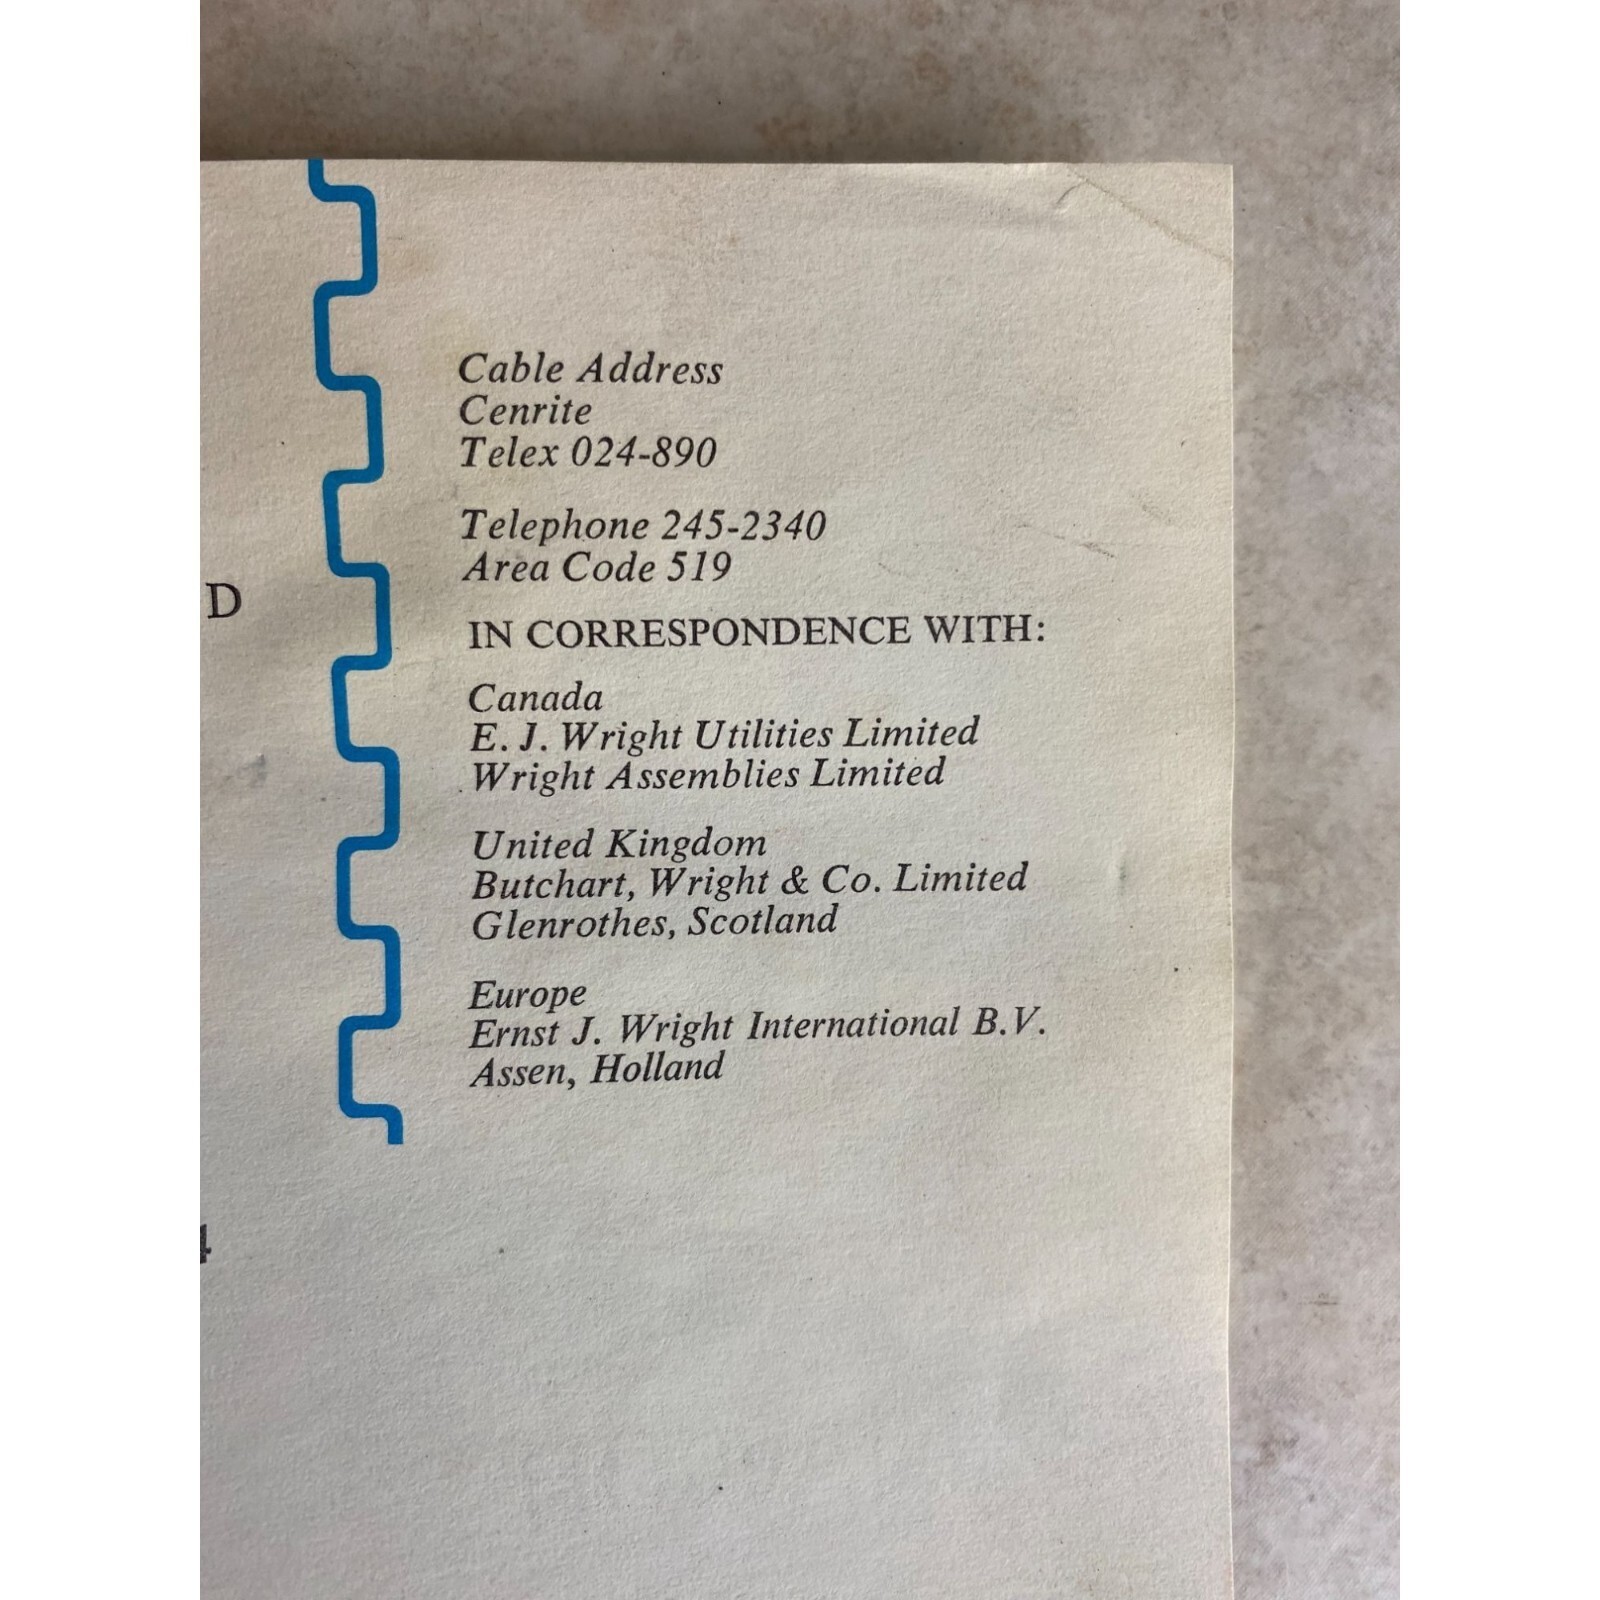 Cable Address
Cenrite
Telex 024-890
Telephone 245-2340
Area Code 519
D
IN CORRESPONDENCE WITH:
Canada
E. J. Wright Utilities Limited
Wright Assemblies Limited
United Kingdom
Butchart, Wright & Co. Limited
Glenrothes, Scotland
Europe
Ernst J. Wright International B.V.
Assen, Holland
4